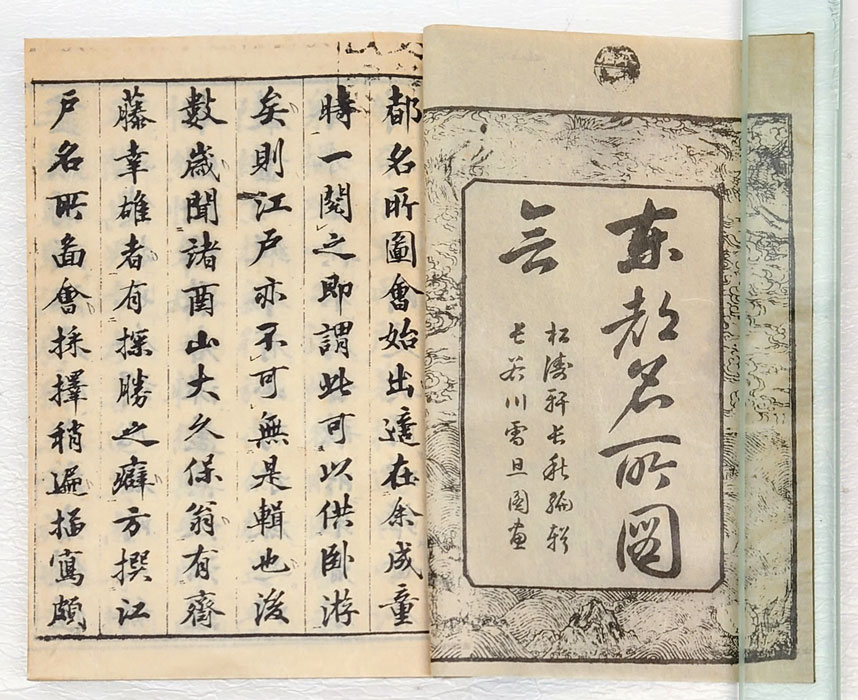 東都名所図
会
松濤軒長秋編輯
長谷川雪旦図画
都名所圖會始出適在余成童
時一閲之即謂此可以供卧游
矣則江戸亦不可無是輯也後
數歳聞諸酉山大久保翁有齋
藤幸雄者有探勝之癖方撰江
戸名所啚會採擇稍遍描寫頗